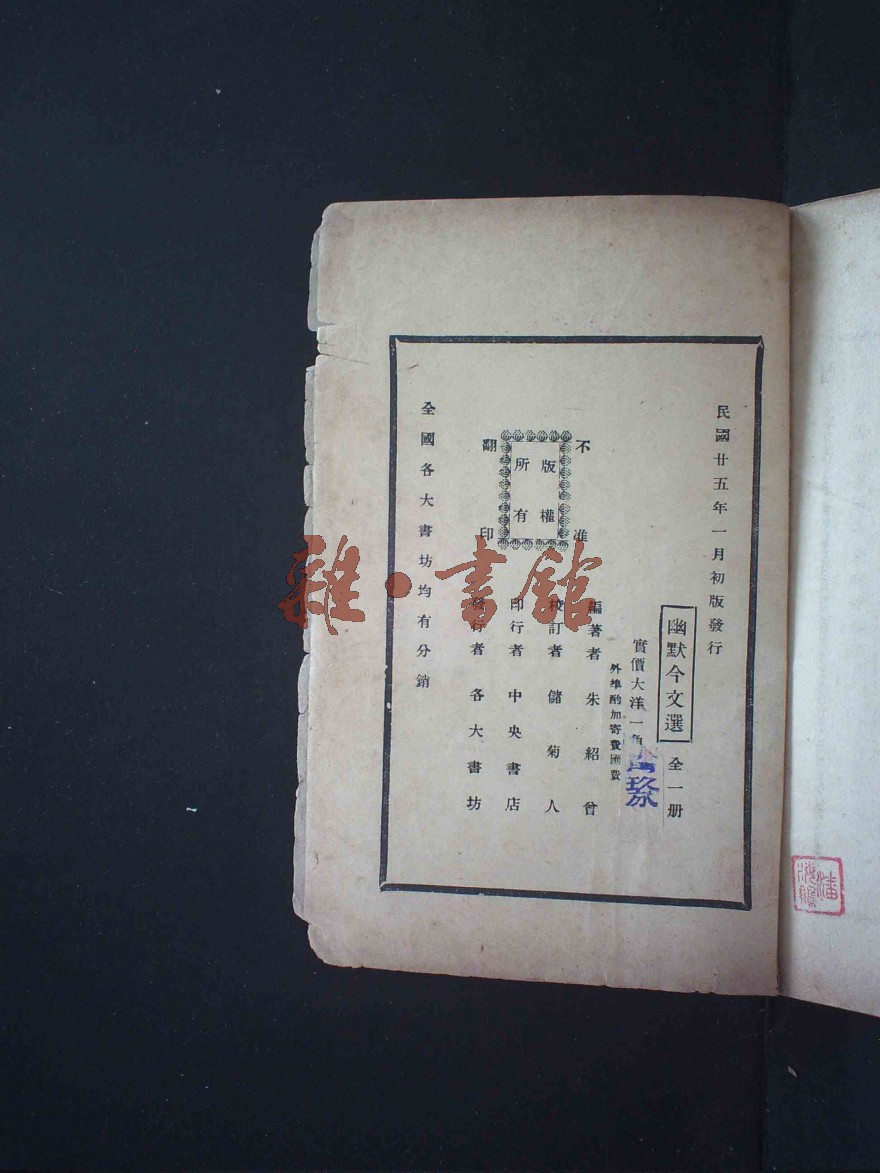 民國廿五年一月初版發行
幽默今文選 全一册
實價大洋一角
外埠酌加寄費匯費
編著者 朱紹曾
校訂者 儲菊人
印行者 中央書店
發行者 各大書坊
不准
版權
所有
翻印
全國各大書坊均有分銷
雜·書館